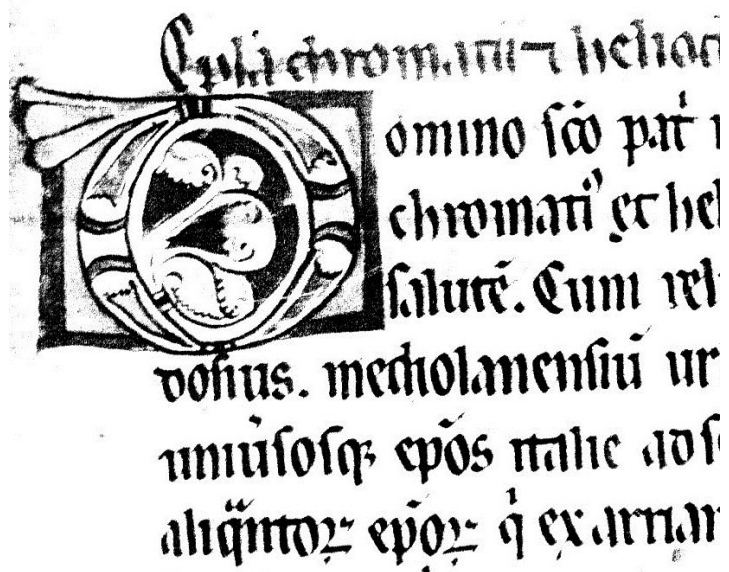 Ep̄la chromatii ⁊ heliod
Domino sc̄o pat̄
chromati' et hel
salutē. Cum rel
dosius. mediolanensiū ur
uniūsosq; ep̄os italie ad
aliq̄ntoꝝ ep̄oꝝ q̇ ex arrian